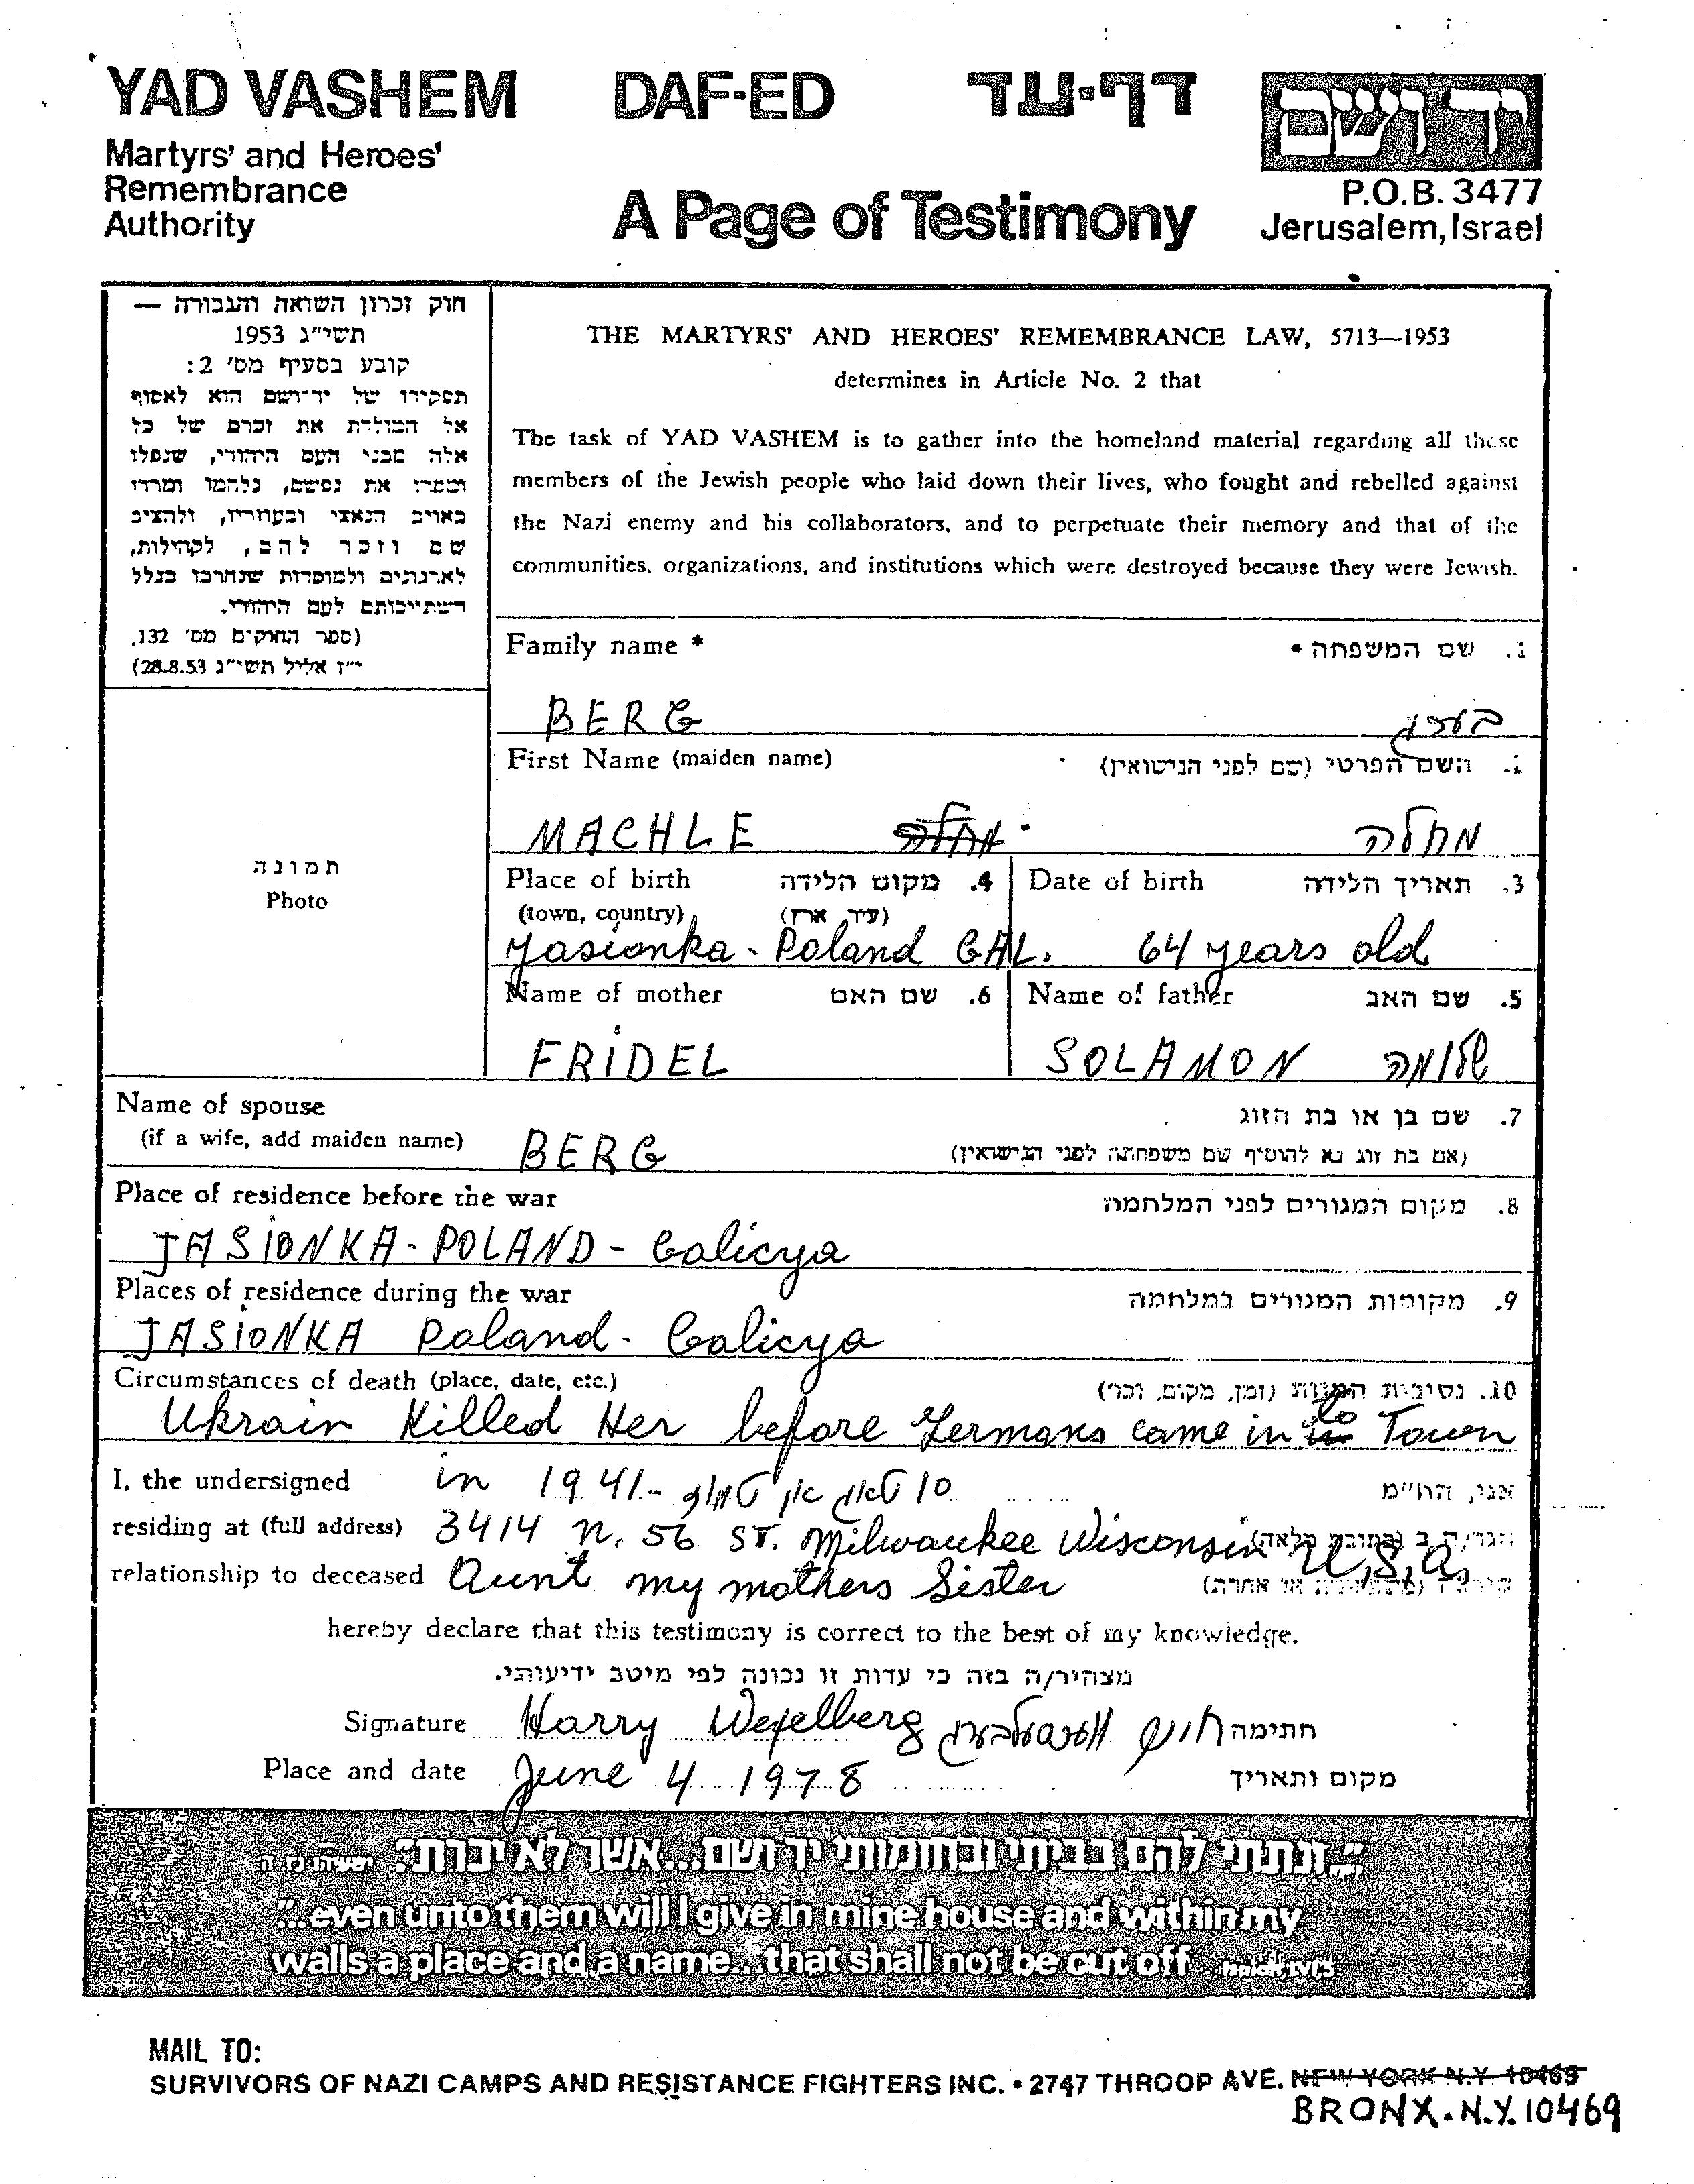 YAD VASHEM DAF-ED דף-עד יד ושם
Martyrs' and Heroes'
Remembrance
Authority
A Page of Testimony
P.O.B. 3477
Jerusalem, Israel
חוק זכרון השואה והגבורה —
תשי"ג 1953
קובע בסעיף מס' 2:
תפקידו של יד-ושם הוא לאסוף
אל המולדת את זכרם של כל
אלה מבני העם היהודי, שנפלו
ומסרו את נפשם, נלחמו ומרדו
באויב הנאצי ובעוזריו, ולהציב
שם וזכר להם, לקהילות,
לארגונים ולמוסדות שנחרבו בגלל
השתייכותם לעם היהודי.
(ספר החוקים מס' 132,
י"ז אלול תשי"ג 28.8.53)
תמונה
Photo
THE MARTYRS' AND HEROES' REMEMBRANCE LAW, 5713—1953
determines in Article No. 2 that
The task of YAD VASHEM is to gather into the homeland material regarding all those
members of the Jewish people who laid down their lives, who fought and rebelled against
the Nazi enemy and his collaborators, and to perpetuate their memory and that of the
communities, organizations, and institutions which were destroyed because they were Jewish.
Family name * 1. שם המשפחה *
BERG בערג
First Name (maiden name) 2. השם הפרטי (שם לפני הנישואין)
MACHLE מחלה
Place of birth 4. מקום הלידה Date of birth 3. תאריך הלידה
(town, country) (עיר, ארץ)
Jasionka - Poland GAL. 64 years old
Name of mother 6. שם האם Name of father 5. שם האב
FRIDEL SOLAMON שלומה
Name of spouse 7. שם בן או בת הזוג
(if a wife, add maiden name) BERG (אם בת זוג נא להוסיף שם משפחתה לפני הנישואין)
Place of residence before the war 8. מקום המגורים לפני המלחמה
JASIONKA - POLAND - Galicya
Places of residence during the war 9. מקומות המגורים במלחמה
JASIONKA Poland - Galicya
Circumstances of death (place, date, etc.) 10. נסיבות המוות (זמן, מקום, וכו')
Ukrain Killed Her before Germans came in to Town
I, the undersigned in 1941 - 10 אני, הח"מ
residing at (full address) 3414 N. 56 ST. Milwaukee Wisconsin U.S.A.
relationship to deceased Aunt my mothers Sister
hereby declare that this testimony is correct to the best of my knowledge.
מצהיר/ה בזה כי עדות זו נכונה לפי מיטב ידיעותי.
Signature Harry Wexelberg חתימה
Place and date June 4 1978 מקום ותאריך
"...ונתתי להם בביתי ובחומותי יד ושם...אשר לא יכרת". ישעיהו נו ה
"...even unto them will I give in mine house and within my
walls a place and a name...that shall not be cut off" Isaiah, LVI,5
MAIL TO:
SURVIVORS OF NAZI CAMPS AND RESISTANCE FIGHTERS INC. • 2747 THROOP AVE. NEW YORK N.Y. 10469
BRONX. N.Y. 10469